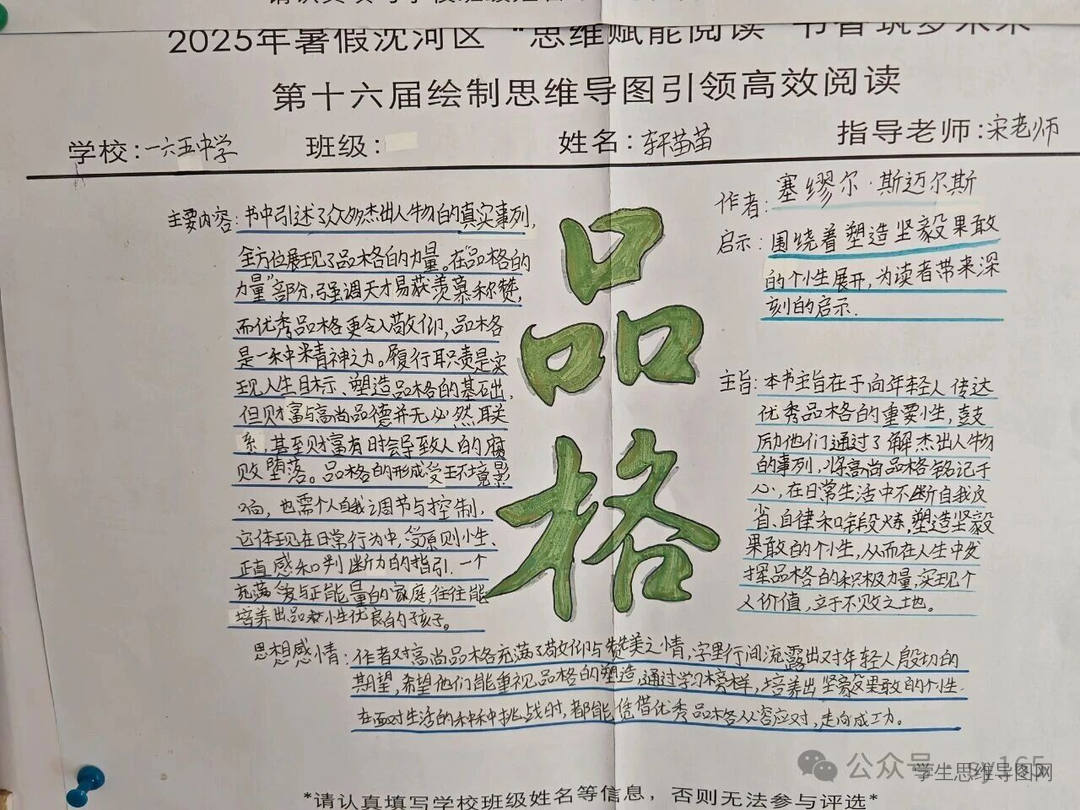 2025年暑假沈河区“思维赋能阅读 书香筑梦未来
第十六届绘制思维导图引领高效阅读
学校:一六五中学 班级: 姓名:轩苗苗 指导老师:宋老师
主要内容:书中引述了众多杰出人物的真实事列,
全方位展现了品格的力量。在“品格的
力量”部分,强调天才易获羡慕称赞,
而优秀品格更令人敬仰,品格
是一种精神之力。履行职责是实
现人生目标、塑造品格的基础,
但财富与高尚品德并无必然联
系,甚至财富有时会导致人的腐
败堕落。品格的形成受环境影
响,也需个人自我调节与控制,
这体现在日常行为中,受原则性、
正直感和判断力的指引.一个
充满爱与正能量的家庭,往往能
培养出品性优良的孩子。
品格
作者:塞缪尔·斯迈尔斯
启示:围绕着塑造坚毅果敢
的个性展开,为读者带来深
刻的启示.
主旨:本书主旨在于向年轻人传达
优秀品格的重要性,鼓
励他们通过了解杰出人物
的事列,将高尚品格铭记于
心,在日常生活中不断自我反
省、自律和锻炼,塑造坚毅
果敢的个性,从而在人生中发
挥品格的积极力量,实现个
人价值,立于不败之地。
思想感情:作者对高尚品格充满了敬仰与赞美之情,字里行间流露出对年轻人殷切的
期望,希望他们能重视品格的塑造,通过学习榜样,培养出坚毅果敢的个性.
在面对生活的种种挑战时,都能凭借优秀品格从容应对,走向成功。
*请认真填写学校班级姓名等信息，否则无法参与评选*
公众号·sy165
学生思维导图网